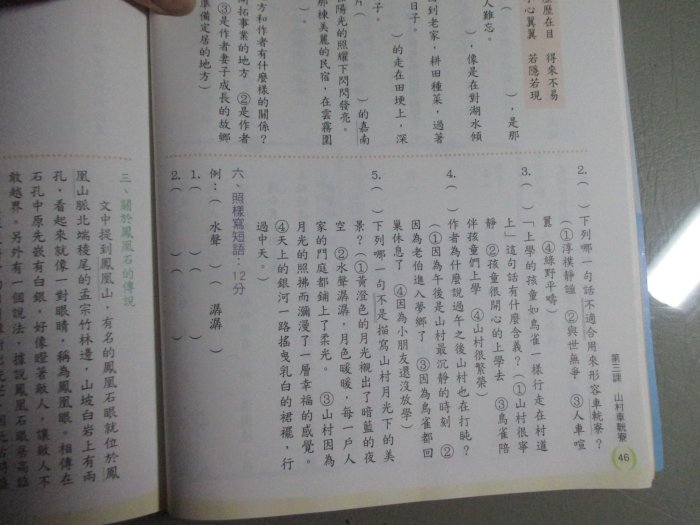 第三課　山村車軼寮
46
歷歷在目　得來不易
心翼翼　若隱若現
人難忘。
)，是那
)，像是在對湖水傾
到老家，耕田種菜，過著
日子。
)的走在田埂上，深
)的嘉南
陽光的照耀下閃閃發亮。
那棟美麗的民宿，在雲霧圍
方和作者有什麼樣的關係？
拓事業的地方　②是作者
③是作者妻子成長的故鄉
準備定居的地方)
2.(　)下列哪一句話不適合用來形容車軼寮？
(①淳樸靜謐　②與世無爭　③人車喧
囂　④綠野平疇)
3.(　)「上學的孩童如鳥雀一樣行走在村道
上」這句話有什麼含義？(①山村很寧
靜　②孩童很開心的上學去　③鳥雀陪
伴孩童們上學　④山村很繁榮)
4.(　)作者為什麼說過午之後山村也在打盹？
(①因為午後是山村最沉靜的時刻　②
因為老伯進入夢鄉了　③因為鳥雀都回
巢休息了　④因為小朋友還沒放學)
5.(　)下列哪一句不是描寫山村月光下的美
景？(①黃澄色的月光襯出了暗藍的夜
空　②水聲潺潺，月色暖暖，每一戶人
家的門庭都鋪上了柔光。　③山村因為
月光的照拂而瀰漫了一層幸福的感覺。
④天上的銀河一路搖曳乳白的裙襬，行
過中天。)
六、照樣寫短語：12分
例：(　水聲　)(　潺潺　)
1.(　)(　)
2.(　)(　)
三、關於鳳凰石的傳說
文中提到鳳凰山，有名的鳳凰石眼就位於鳳
凰山脈北端稜尾的孟宗竹林邊，山坡白岩上有兩
孔，看起來就像一對眼睛，稱為鳳凰眼。相傳在
石孔中原先嵌有白銀，好像瞪著敵人，讓敵人不
敢越界。另外有一個說法，據說鳳凰石眼居高臨